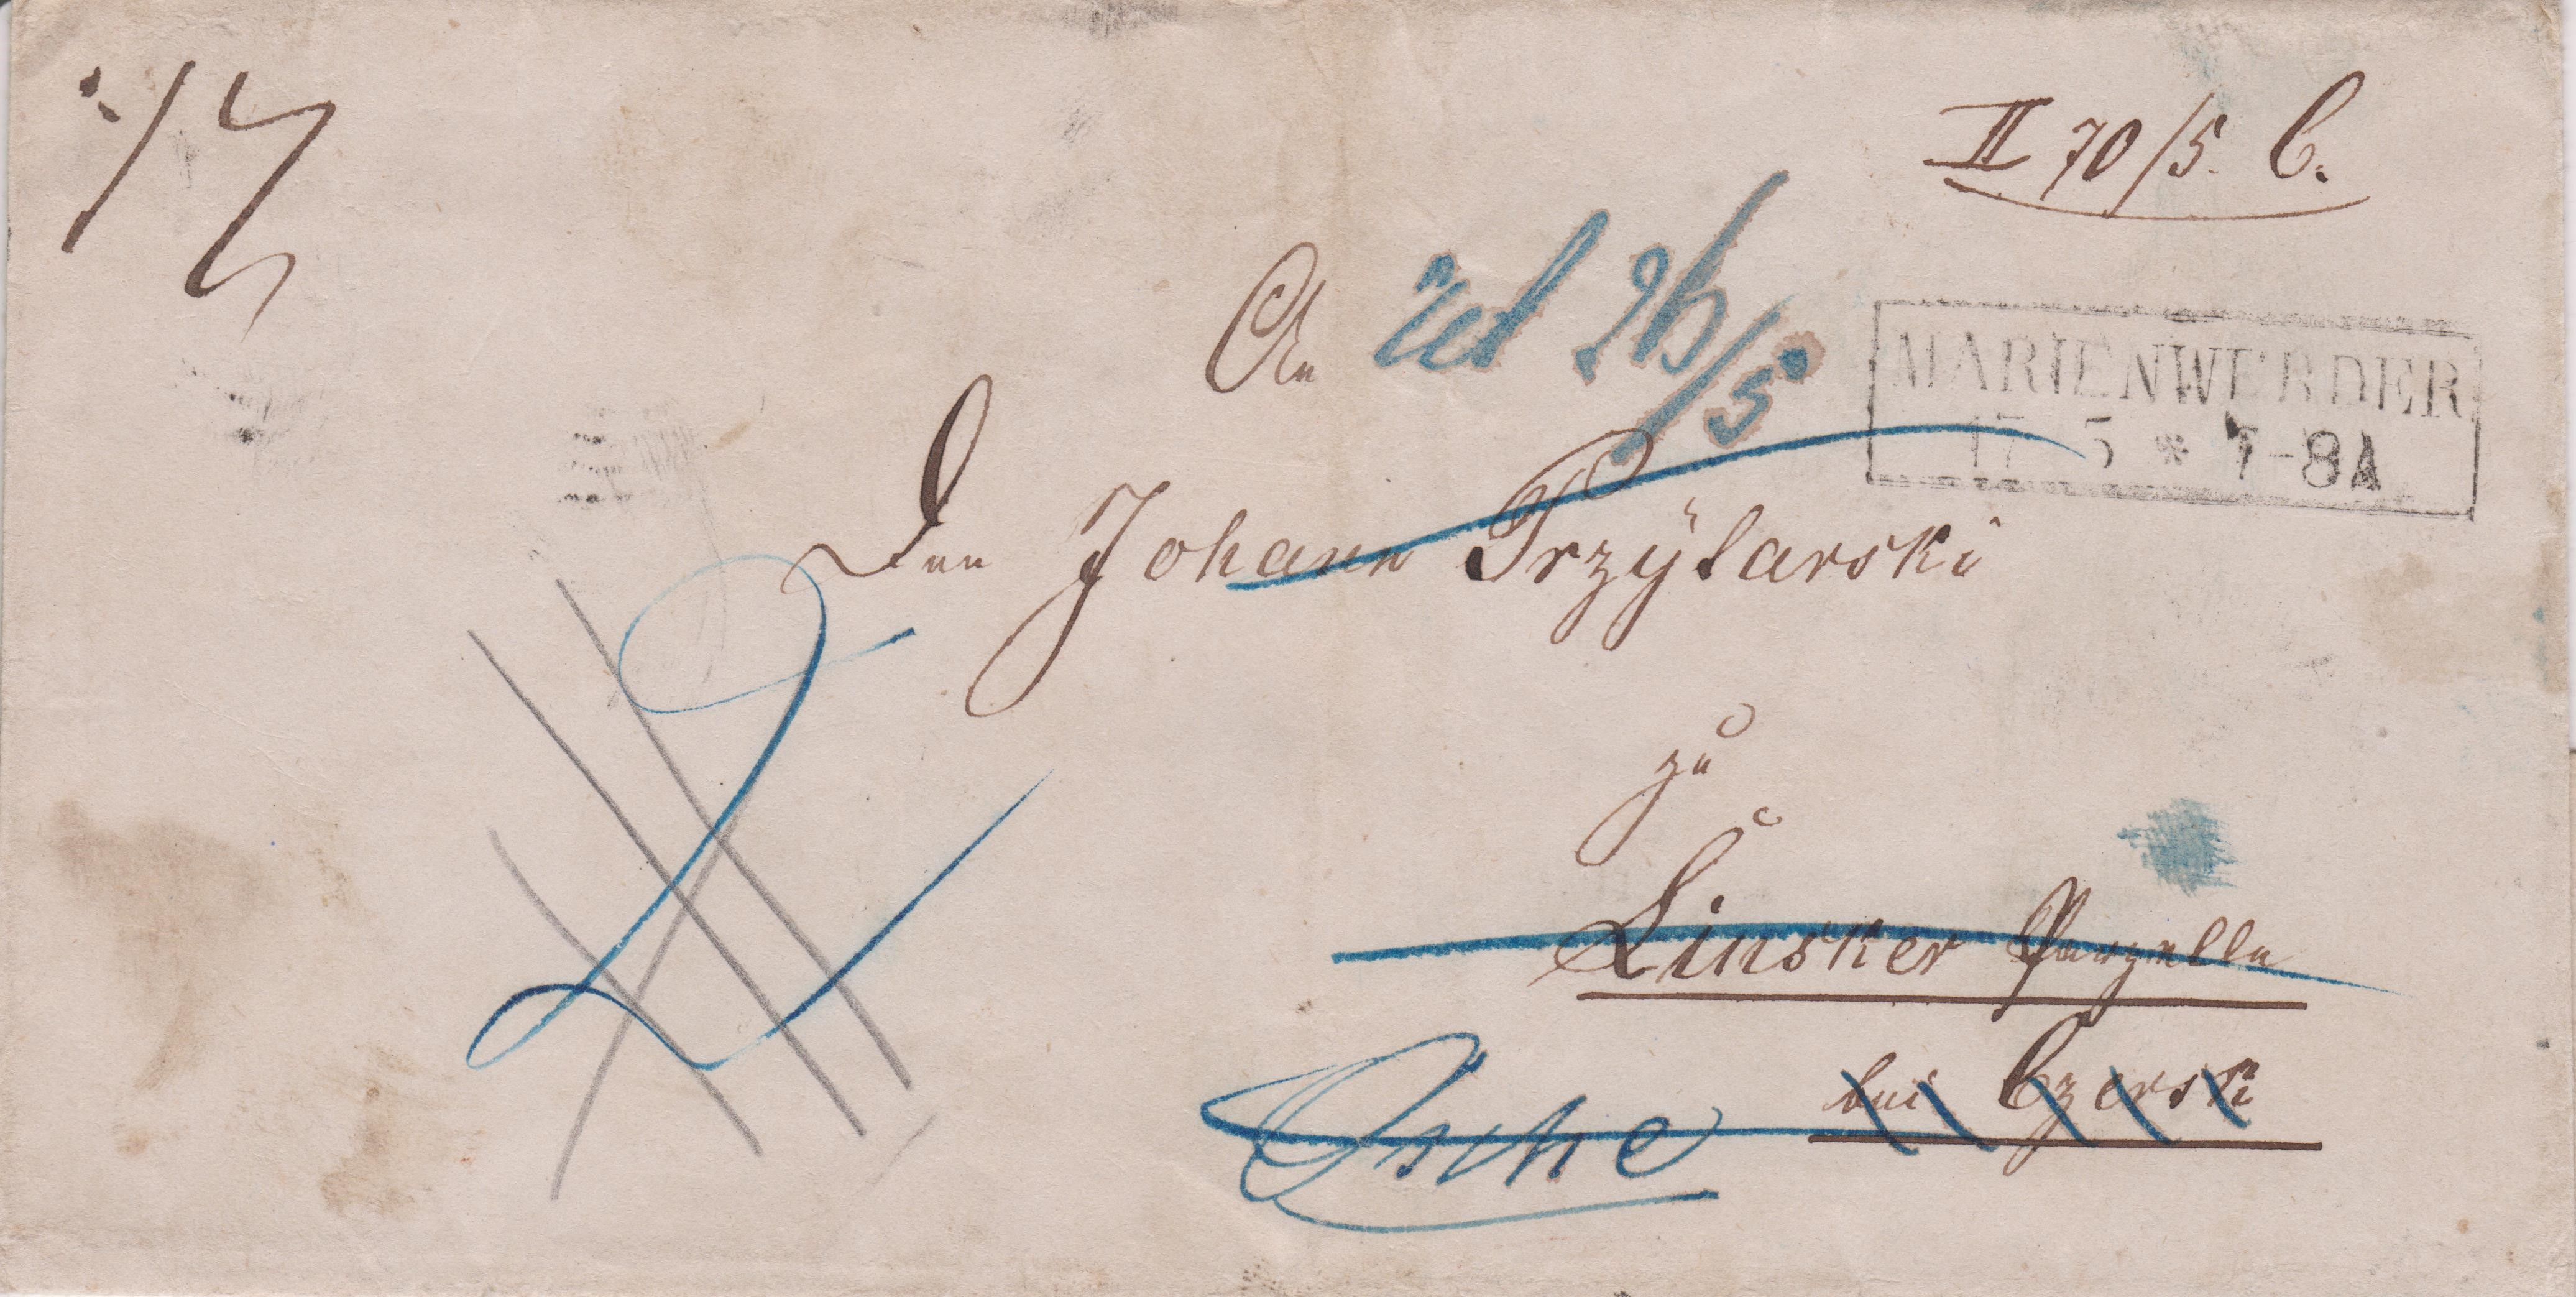 II 70/5. C.
An
ret 26/5
MARIENWERDER
17 5 * 7-8 A
Den Johann Przytarski
zu
Linsker Parzelle
bei Czersk
Osche